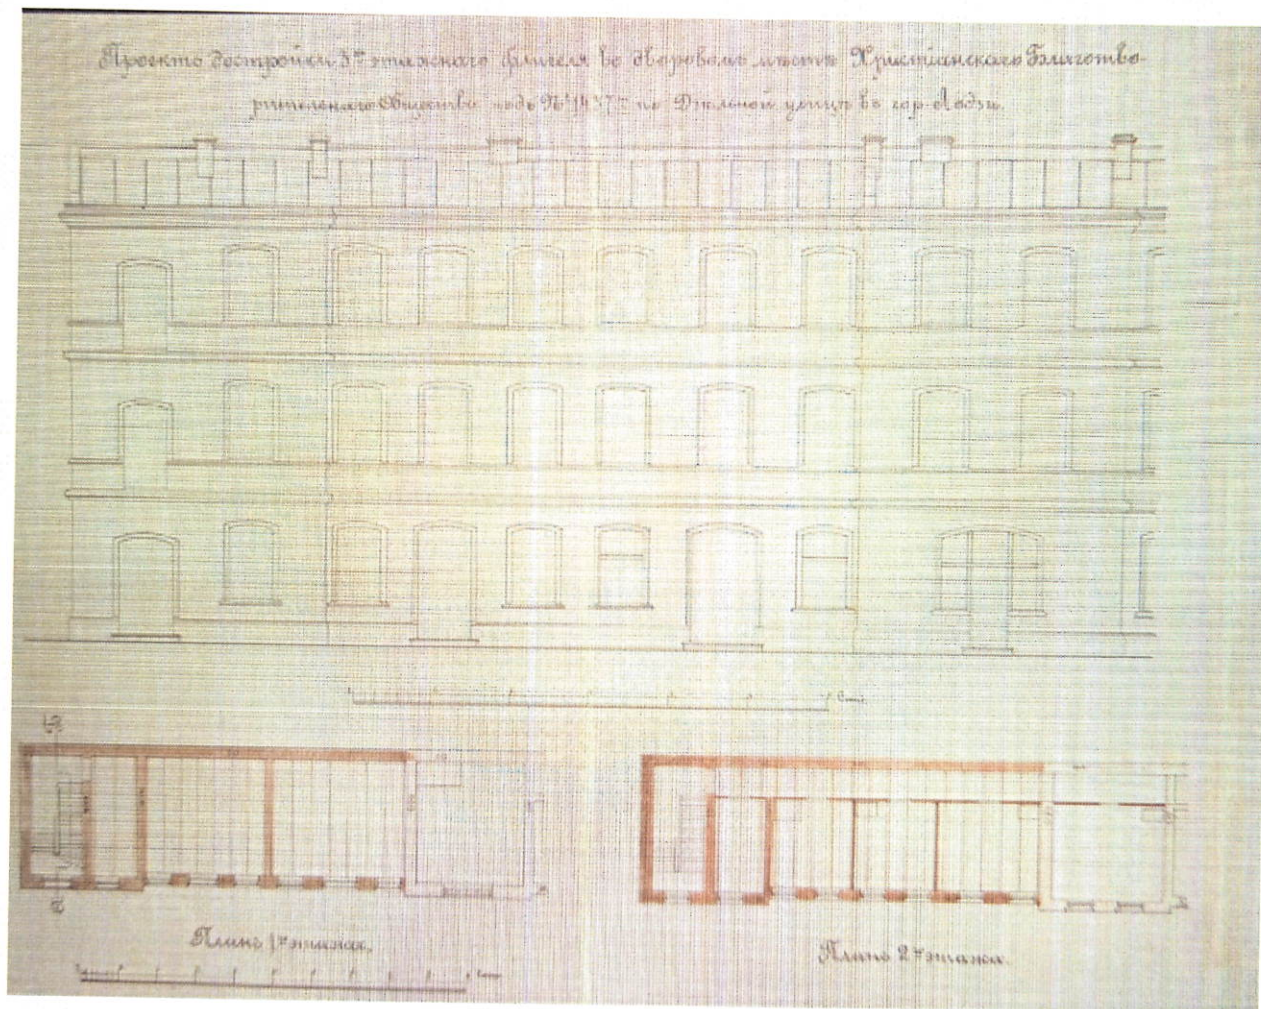 Проектъ достройки 3ᵐ этажнаго флигеля во дворовомъ мѣстѣ Христіанскаго Благотво-
рительнаго Общества подъ № 1437 по Дѣльной улицѣ въ гор. Лодзи.
Саж.
Планъ 1ᵍᵒ этажа.
Планъ 2ᵍᵒ этажа.
Саж.